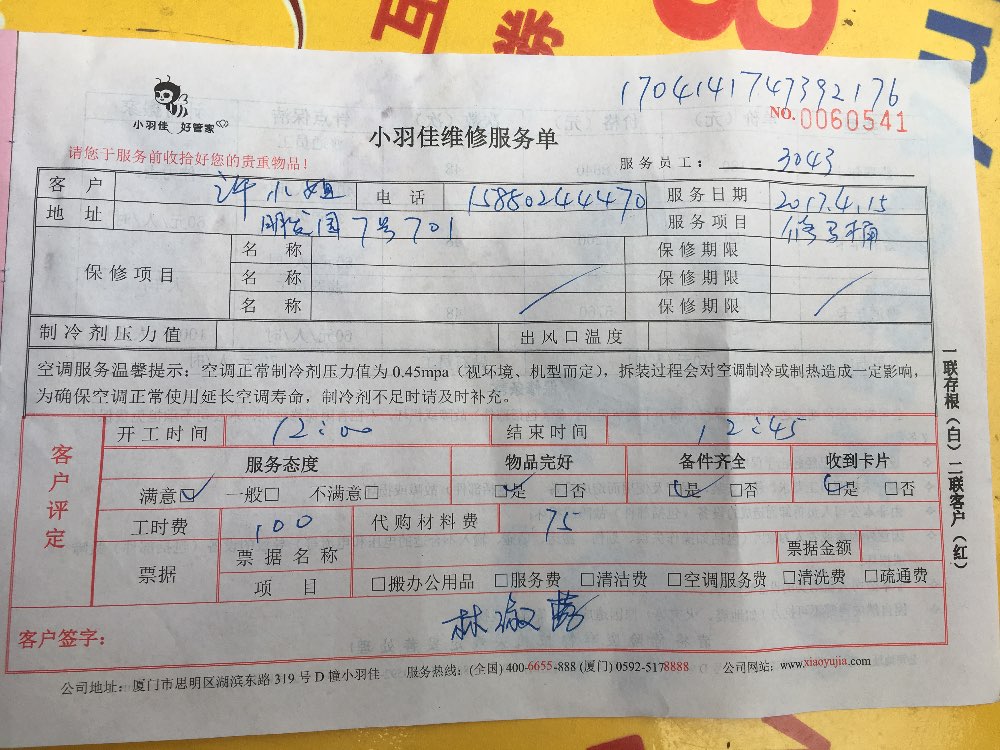 互
券
1704141747392176
小羽佳 好管家
NO. 0060541
小羽佳维修服务单
请您于服务前收拾好您的贵重物品！
服务员工： 3043
客户 许小姐 电话 15880244470 服务日期 2017.4.15
地址 明发园7号701 服务项目 修马桶
保修项目 名称 保修期限
名称 保修期限
名称 保修期限
制冷剂压力值 出风口温度
空调服务温馨提示：空调正常制冷剂压力值为 0.45mpa（视环境、机型而定），拆装过程会对空调制冷或制热造成一定影响，
为确保空调正常使用延长空调寿命，制冷剂不足时请及时补充。
客户评定
开工时间 12:00 结束时间 12:45
服务态度 物品完好 备件齐全 收到卡片
满意☑ 一般□ 不满意□ ☑是 □否 ☑是 □否 ☑是 □否
工时费 100 代购材料费 75
票据 票据名称 票据金额
项目 □搬办公用品 □服务费 □清沽费 □空调服务费 □清洗费 □疏通费
客户签字： 林淑
一联存根（白）二联客户（红）
公司地址：厦门市思明区湖滨东路 319 号 D 幢小羽佳 服务热线：(全国) 400-6655-888 (厦门) 0592-5178888 公司网站：www.xiaoyujia.com